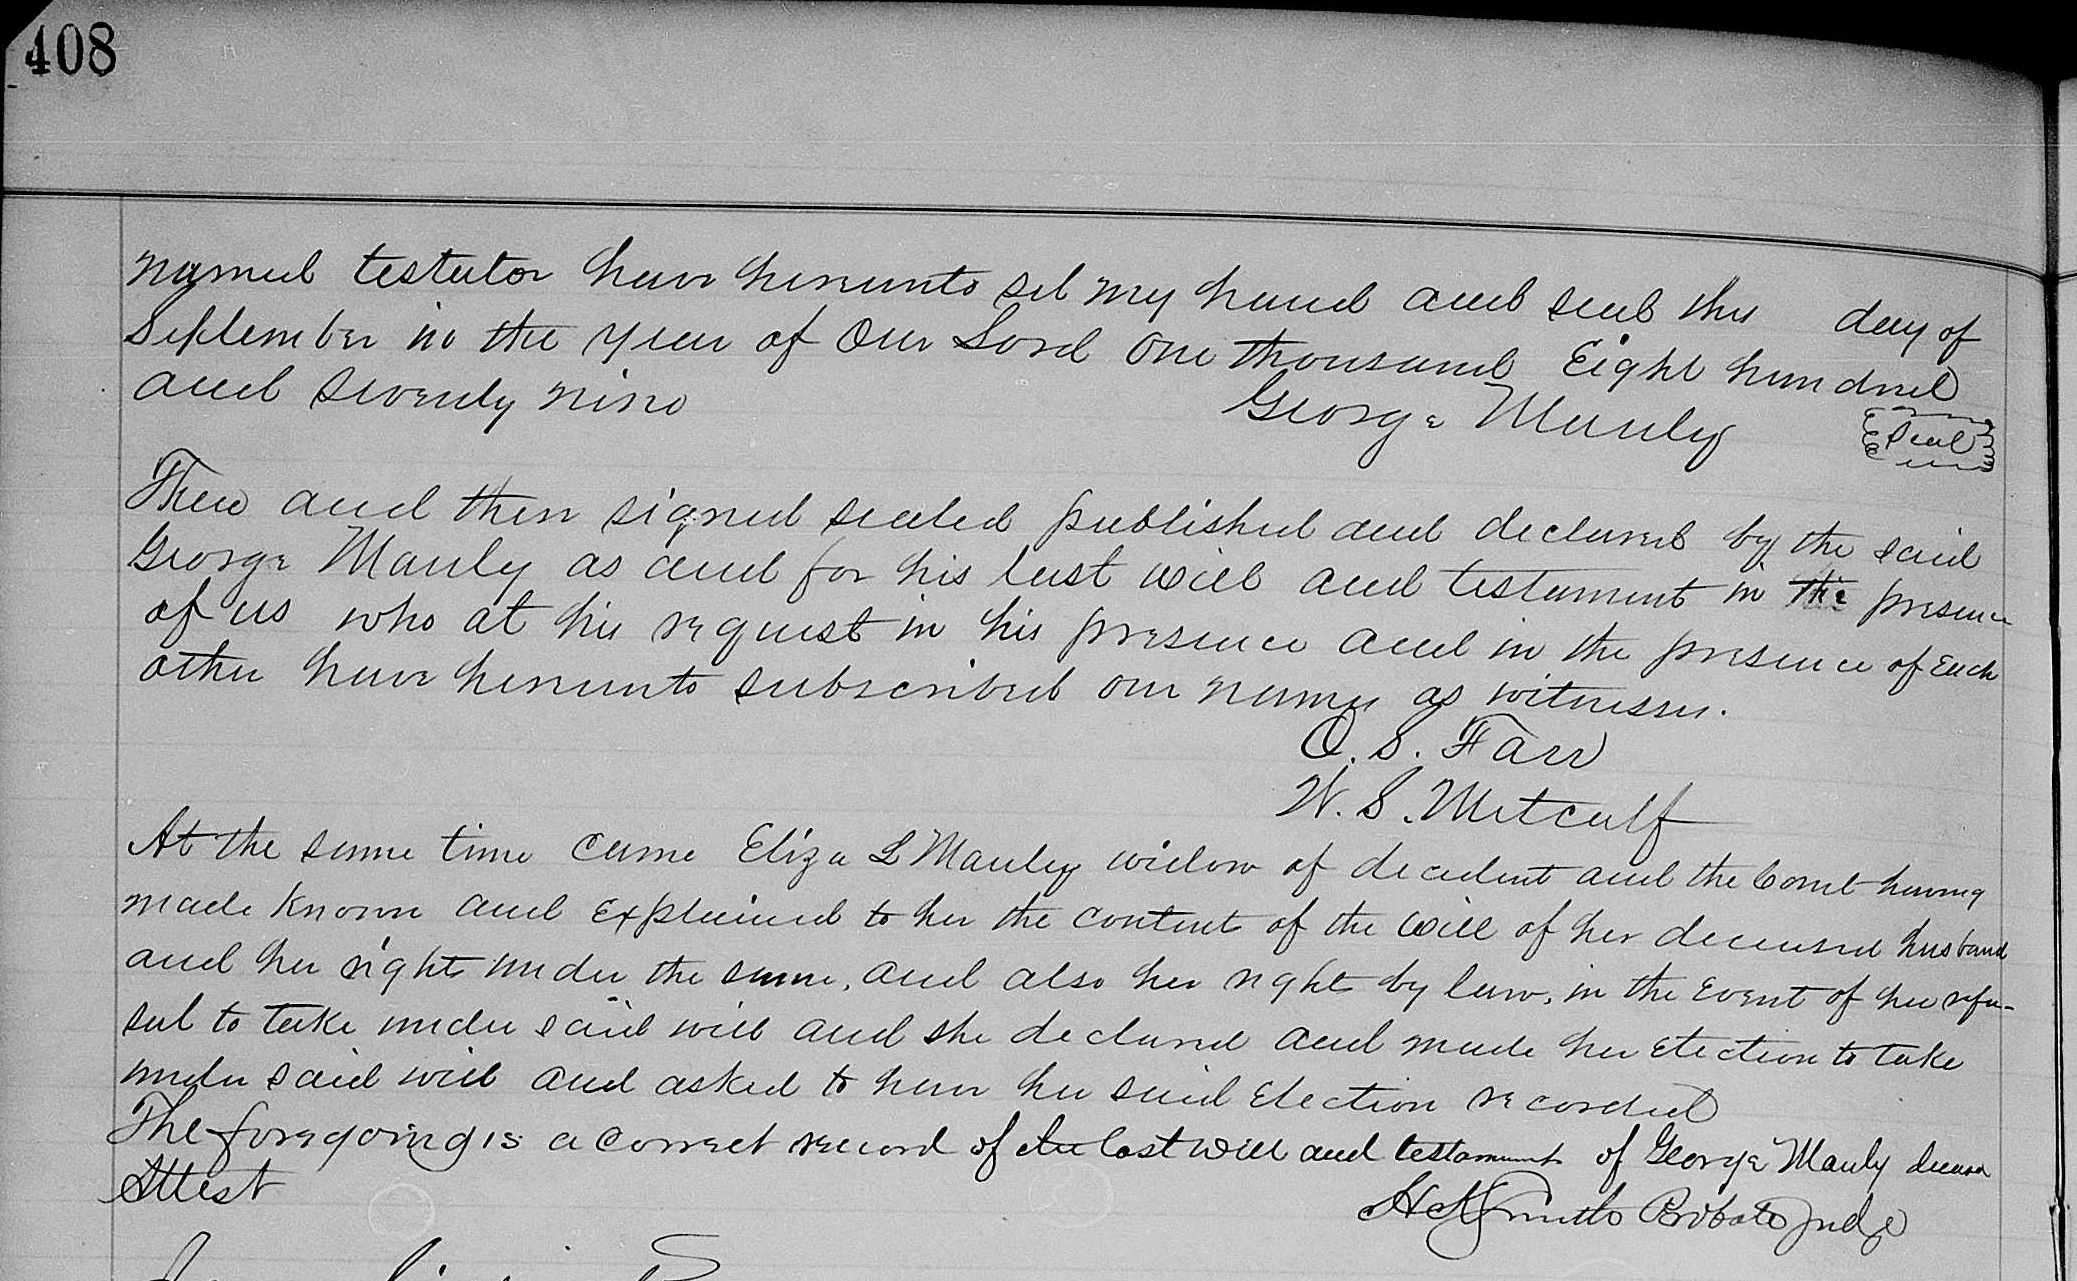 408
named testator have hereunto set my hand and seal this day of
September in the year of Our Lord One thousand Eight hundred
and seventy nine
George Manly
Seal
Then and there signed sealed published and declared by the said
George Manly as and for his last will and testament in the presence
of us who at his request in his presence and in the presence of Each
other have hereunto subscribed our names as witnesses.
O. S. Farr
W. S. Metcalf
At the same time came Eliza L Manly widow of decedent and the Court having
made known and explained to her the content of the will of her deceased husband
and her rights under the same, and also her right by law, in the Event of her refu-
sal to take under said will and she declared and made her Election to take
under said will and asked to have her said Election recorded
The foregoing is a correct record of the last will and testament of George Manly deceased
Attest
Smith Probate Judge